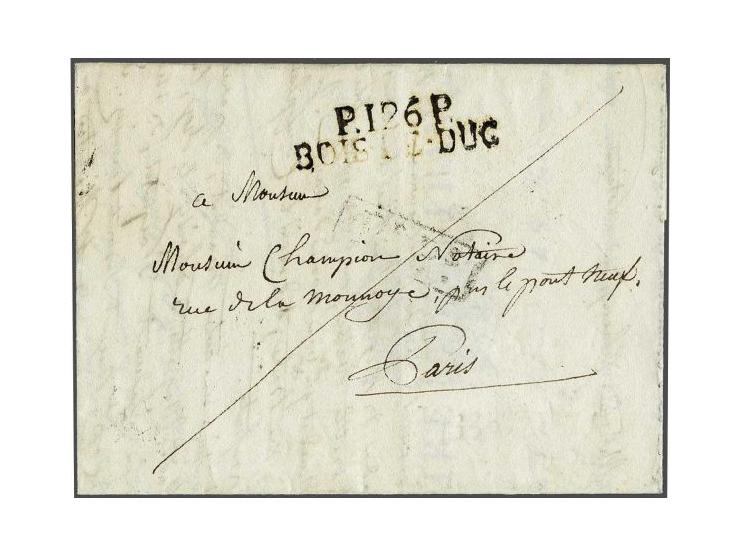 P.126 P.
BOIS-LE-DUC
a Monsieur
Monsieur Champion Notaire
rue de la monnoye, près le pont neuf.
Paris